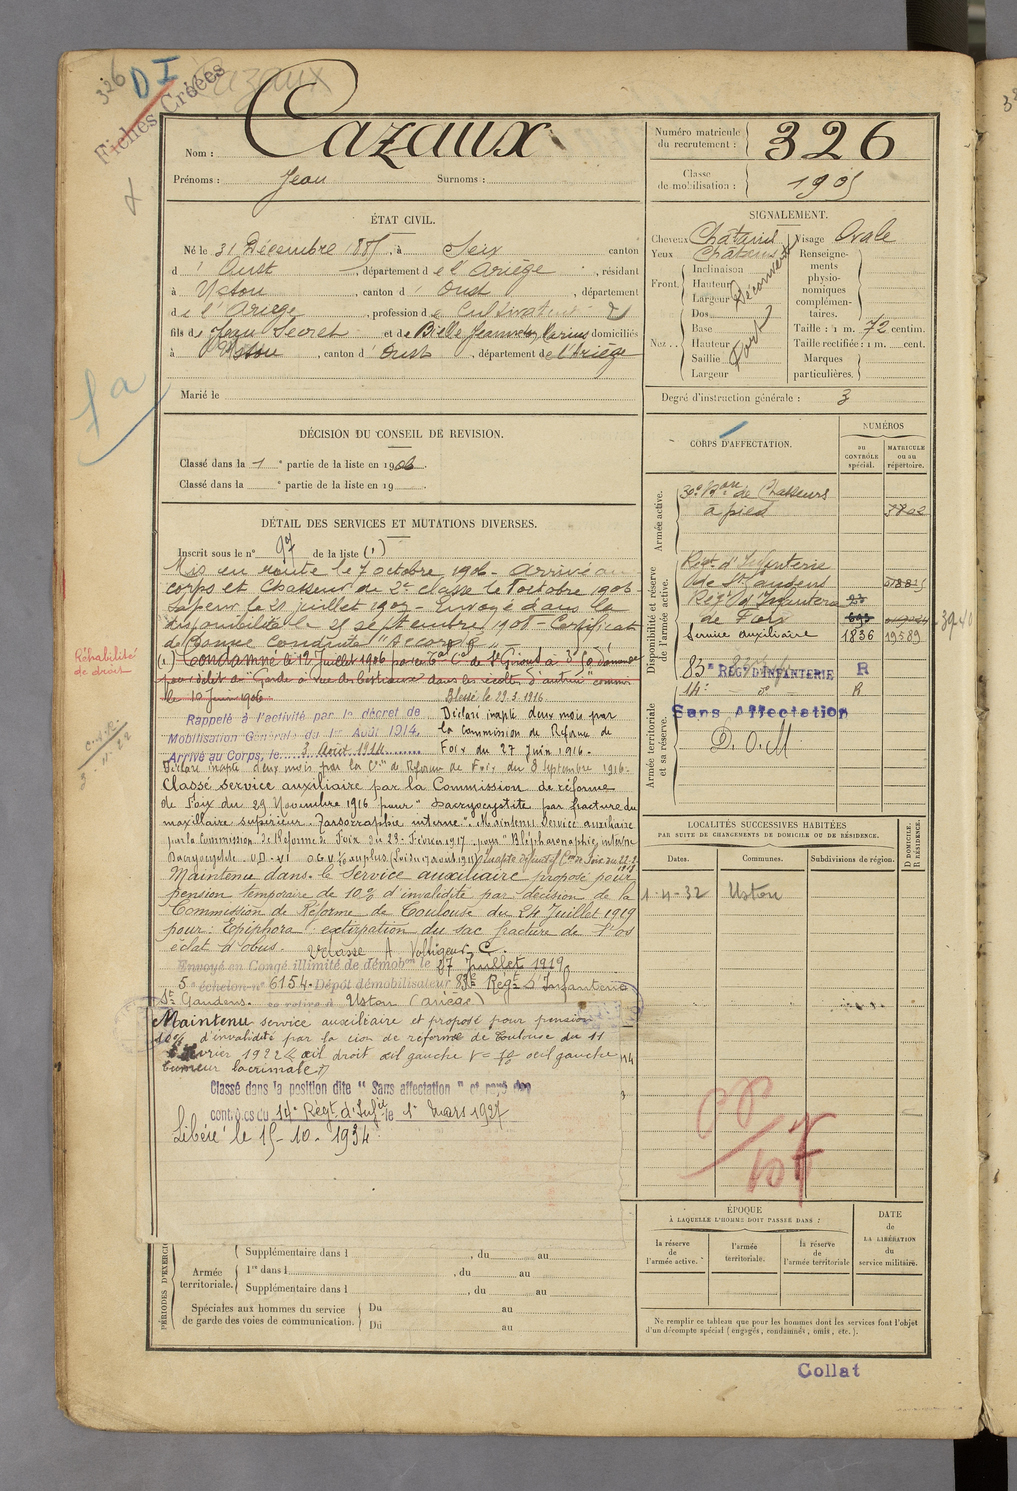 326
D I
Cazaux
Fiches Créées
Nom : Cazaux
Prénoms : Jean Surnoms :
Numéro matricule du recrutement : 326
Classe de mobilisation : 1905
ÉTAT CIVIL.
Né le 31 Décembre 1885, à Seix canton
d' Oust, département de l'Ariège, résidant
à Ustou, canton d' Oust, département
de l'Ariège, profession de Cultivateur
fils de Jean Secret et de Bielle Jeanne Marie domiciliés
à Ustou, canton d' Oust, département de l'Ariège
Marié le
SIGNALEMENT.
Cheveux Châtains Visage Ovale
Yeux Châtains
Front. Inclinaison
Hauteur
Largeur
Découvert
Nez . . Dos
Base
Hauteur
Saillie
Largeur
Fort
Renseignements physionomiques complémentaires.
Taille : 1 m. 72 centim.
Taille rectifiée : 1 m. cent.
Marques particulières.
Degré d'instruction générale : 3
fa
DÉCISION DU CONSEIL DE REVISION.
Classé dans la 1 e partie de la liste en 1906.
Classé dans la e partie de la liste en 19
DÉTAIL DES SERVICES ET MUTATIONS DIVERSES.
Inscrit sous le n° 97 de la liste (1)
Mis en route le 7 octobre 1906. Arrivé au
corps et Chasseur de 2e classe le 8 octobre 1906.
Sapeur le 21 juillet 1907. Envoyé dans la
disponibilité le 28 septembre 1908. Certificat
de Bonne Conduite "Accordé"
(1) Condamné le 12 Juillet 1906 par le Tal Cel de St Girons à 3 f d'amende
pour délit de "Garde à vue de bestiaux dans les récoltes d'autrui" commis
le 10 Juin 1906.
Réhabilité de droit
Blessé le 29.3.1916
Rappelé à l'activité par le décret de
Mobilisation Générale du 1er Août 1914.
Arrivé au Corps, le 3 Août 1914
Déclaré inapte deux mois par
la Commission de Réforme de
Foix du 27 Juin 1916.
Déclaré inapte deux mois par la Con de Réforme de Foix du 8 septembre 1916.
Classé service auxiliaire par la Commission de réforme
de Foix du 29 Novembre 1916 pour "Dacryocystite par fracture du
maxillaire supérieur. Tarsorraphie interne". Maintenu service auxiliaire
par la Commission de Réforme de Foix du 23 Février 1917
Maintenu dans le Service auxiliaire proposé pour
pension temporaire de 10% d'invalidité par décision de la
Commission de Réforme de Toulouse du 24 Juillet 1919
pour : Epiphora : extirpation du sac fracture de l'os
éclat d'obus.
Envoyé en Congé illimité de démobon le 27 Juillet 1919
5e échelon n° 6154. Dépôt démobilisateur 83e Régt d'Infanterie
St Gaudens. se retire à Ustou (Ariège)
Maintenu service auxiliaire et proposé pour pension
10% d'invalidité par la con de réforme de Toulouse du 11
Février 1922
Classé dans la position dite " Sans affectation " et rayé des
contrôles du 14e Régt d'Infie le 1er mars 1927
Libéré le 15-10-1934.
CORPS D'AFFECTATION.
NUMÉROS
au CONTRÔLE spécial.
MATRICULE ou au répertoire.
Armée active.
30e Bon de Chasseurs
à pied
Disponibilité et réserve de l'armée active.
Régt d'Infanterie
de St Gaudens
Régt d'Infanterie
de Foix
Service auxiliaire 1836 19589
83e RÉGt D'INFANTERIE R
14e do R
Armée territoriale et sa réserve.
Sans Affectation
D.O.M
LOCALITÉS SUCCESSIVES HABITÉES
PAR SUITE DE CHANGEMENTS DE DOMICILE OU DE RÉSIDENCE.
Dates. Communes. Subdivisions de région. D DOMICILE. R RÉSIDENCE.
1-4-32 Ustou
ÉPOQUE
À LAQUELLE L'HOMME DOIT PASSER DANS :
la réserve de l'armée active.
l'armée territoriale.
la réserve de l'armée territoriale
DATE de LA LIBÉRATION du service militaire.
Ne remplir ce tableau que pour les hommes dont les services font l'objet
d'un décompte spécial (engagés, condamnés, omis, etc.).
PÉRIODES D'EXERCI
Armée territoriale.
Supplémentaire dans l , du au
1re dans l , du au
Supplémentaire dans l , du au
Spéciales aux hommes du service
de garde des voies de communication.
Du au
Du au
Collat